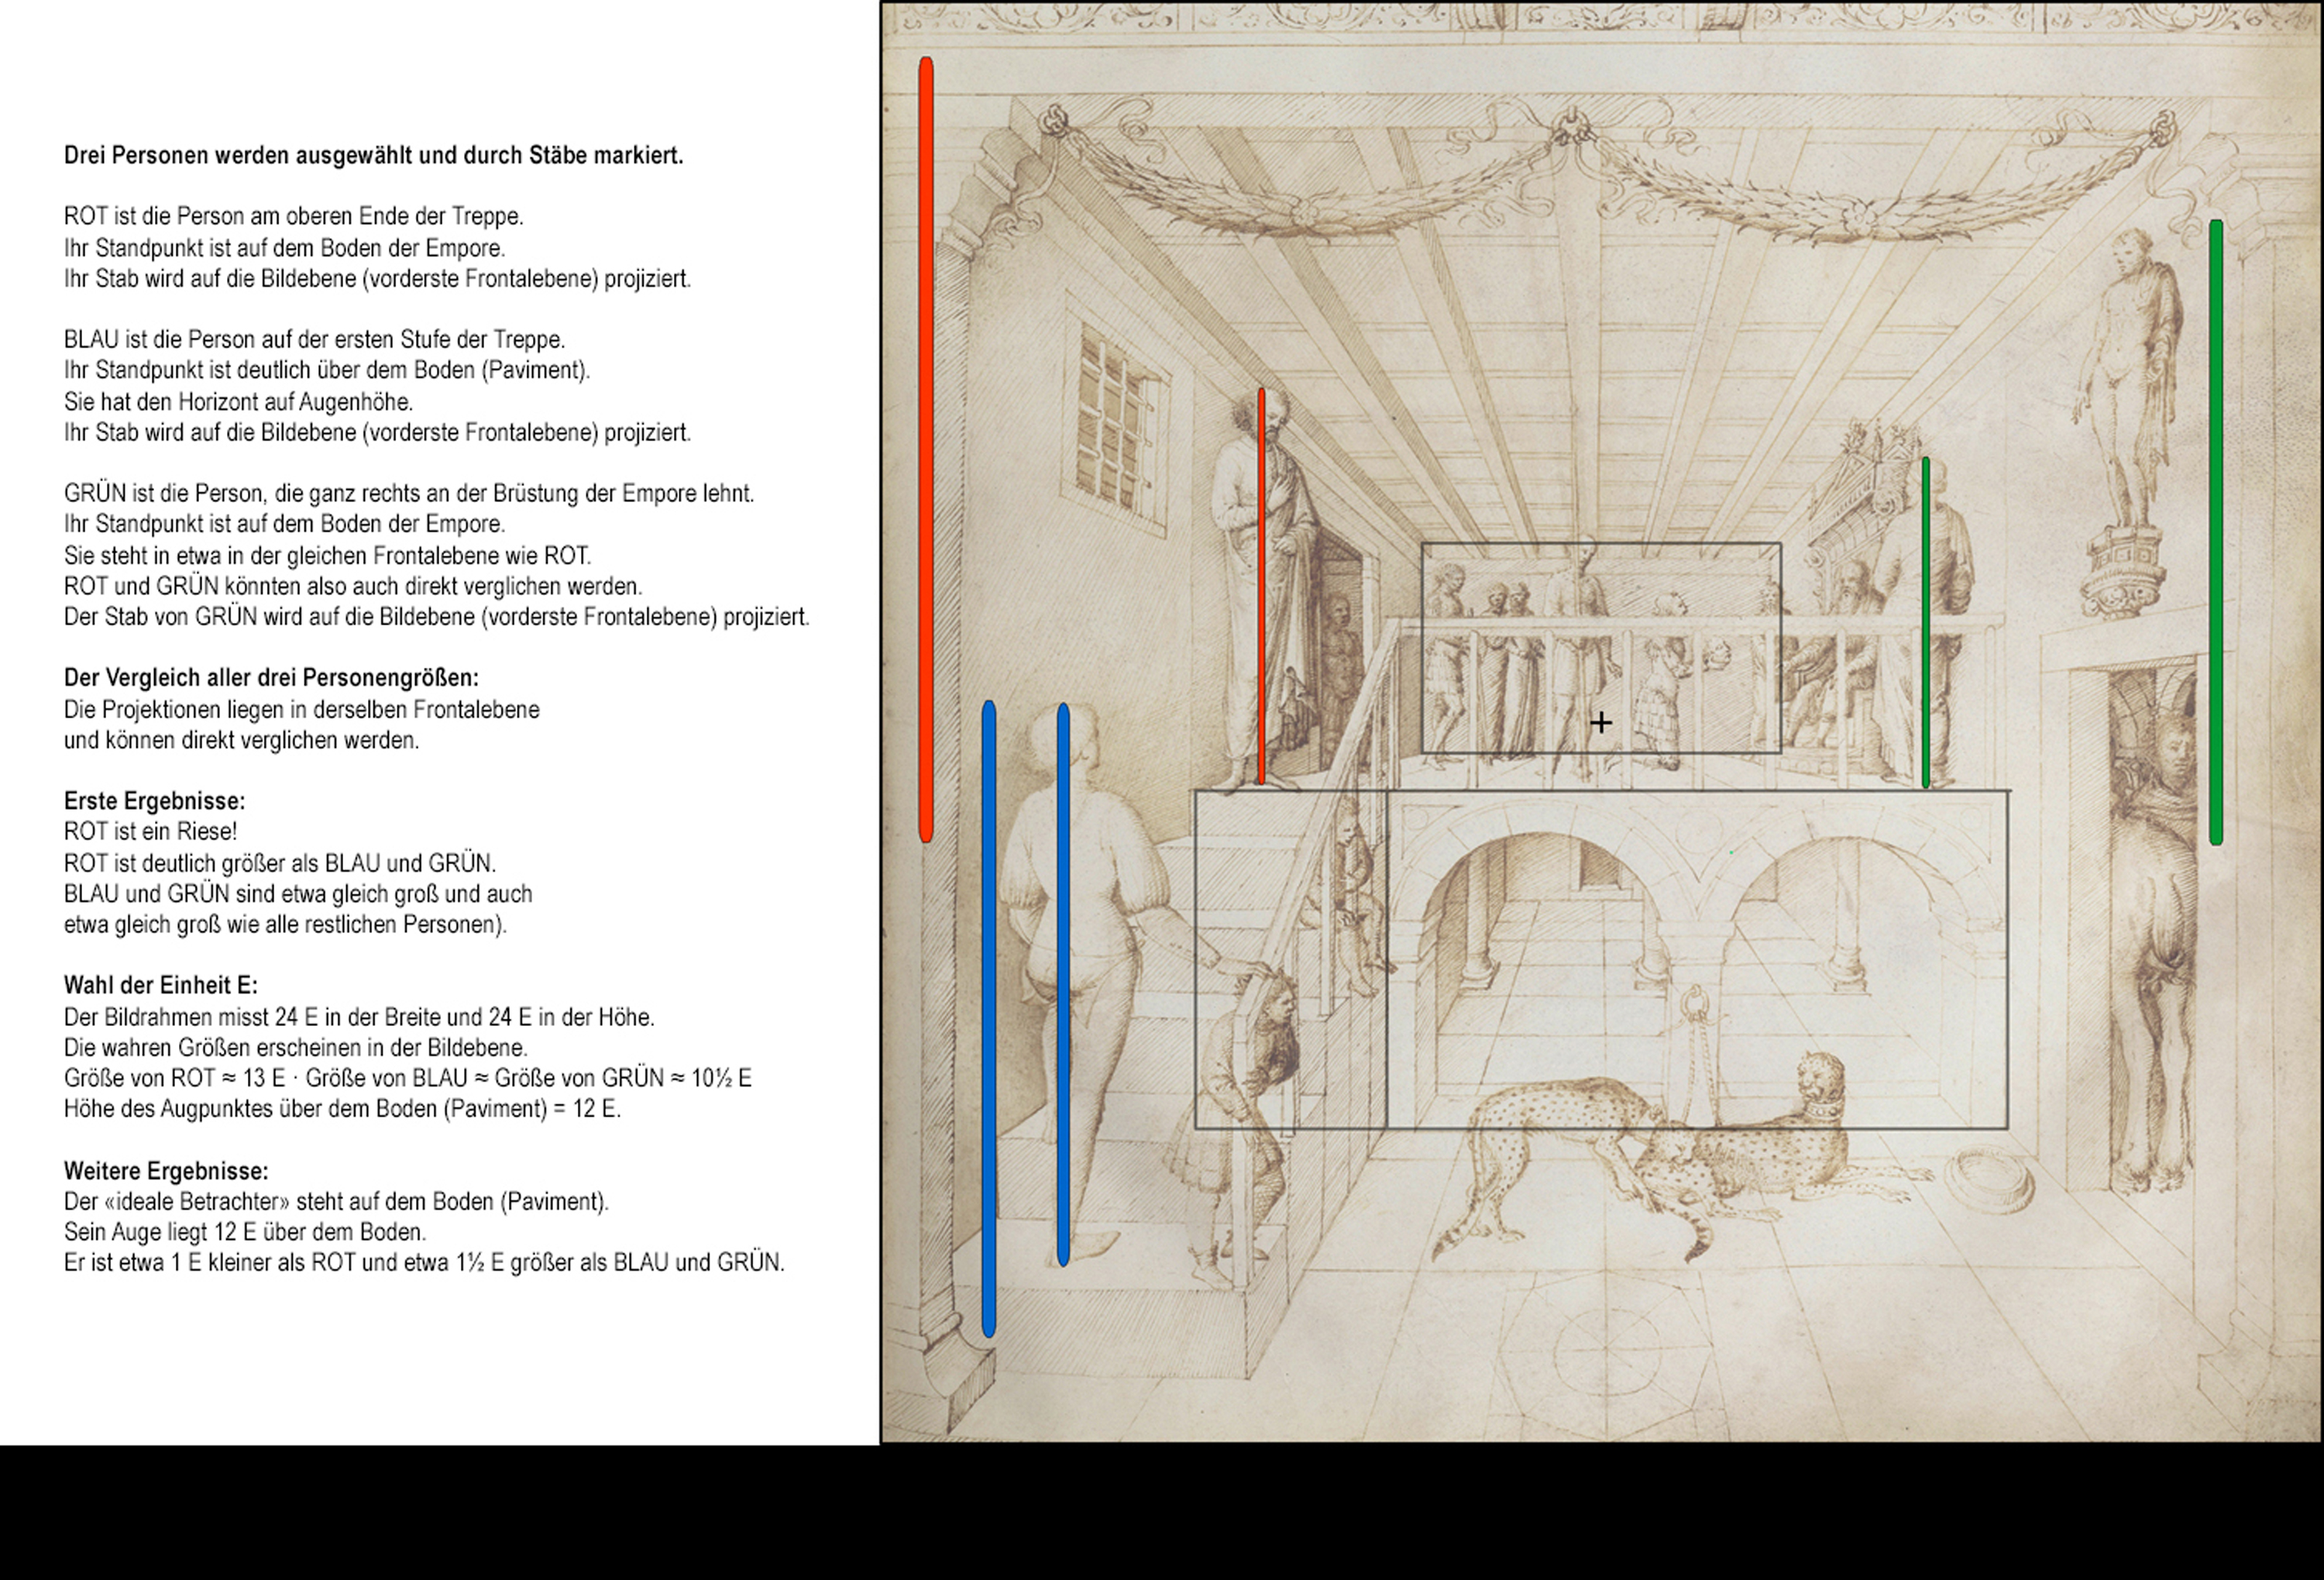 Drei Personen werden ausgewählt und durch Stäbe markiert.
ROT ist die Person am oberen Ende der Treppe.
Ihr Standpunkt ist auf dem Boden der Empore.
Ihr Stab wird auf die Bildebene (vorderste Frontalebene) projiziert.
BLAU ist die Person auf der ersten Stufe der Treppe.
Ihr Standpunkt ist deutlich über dem Boden (Paviment).
Sie hat den Horizont auf Augenhöhe.
Ihr Stab wird auf die Bildebene (vorderste Frontalebene) projiziert.
GRÜN ist die Person, die ganz rechts an der Brüstung der Empore lehnt.
Ihr Standpunkt ist auf dem Boden der Empore.
Sie steht in etwa in der gleichen Frontalebene wie ROT.
ROT und GRÜN könnten also auch direkt verglichen werden.
Der Stab von GRÜN wird auf die Bildebene (vorderste Frontalebene) projiziert.
Der Vergleich aller drei Personengrößen:
Die Projektionen liegen in derselben Frontalebene
und können direkt verglichen werden.
Erste Ergebnisse:
ROT ist ein Riese!
ROT ist deutlich größer als BLAU und GRÜN.
BLAU und GRÜN sind etwa gleich groß und auch
etwa gleich groß wie alle restlichen Personen).
Wahl der Einheit E:
Der Bildrahmen misst 24 E in der Breite und 24 E in der Höhe.
Die wahren Größen erscheinen in der Bildebene.
Größe von ROT ≈ 13 E · Größe von BLAU ≈ Größe von GRÜN ≈ 10½ E
Höhe des Augpunktes über dem Boden (Paviment) = 12 E.
Weitere Ergebnisse:
Der «ideale Betrachter» steht auf dem Boden (Paviment).
Sein Auge liegt 12 E über dem Boden.
Er ist etwa 1 E kleiner als ROT und etwa 1½ E größer als BLAU und GRÜN.